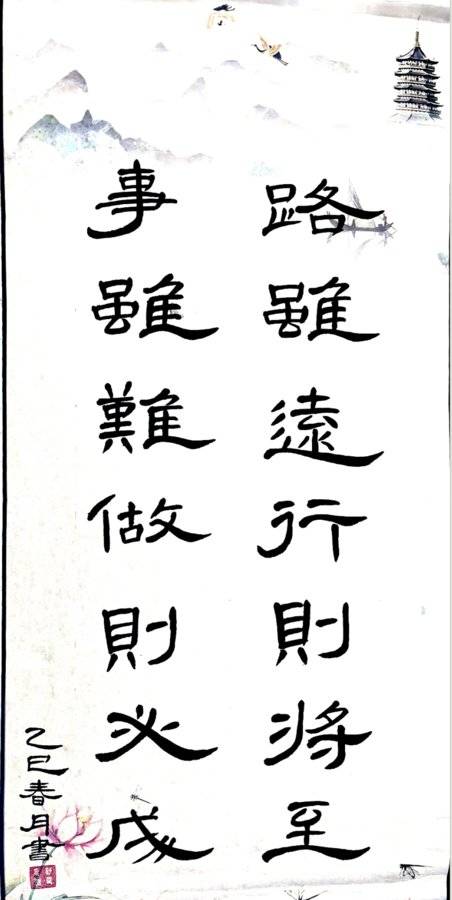 路雖遠行則將至
事雖難做則必成
乙巳春月書